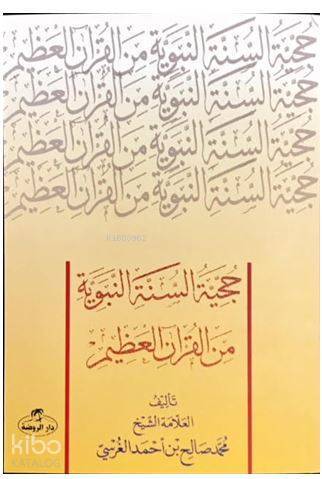 حُجِّيَّةُ السُّنَّةِ النَّبَوِيَّةِ مِنَ القُرْآنِ العَظِيمِ
حُجِّيَّةُ السُّنَّةِ النَّبَوِيَّةِ مِنَ القُرْآنِ العَظِيمِ
حُجِّيَّةُ السُّنَّةِ النَّبَوِيَّةِ مِنَ القُرْآنِ العَظِيمِ
حُجِّيَّةُ السُّنَّةِ النَّبَوِيَّةِ مِنَ القُرْآنِ العَظِيمِ
K1600962
حُجِّيَّةُ السُّنَّةِ النَّبَوِيَّةِ
مِنَ القُرْآنِ العَظِيمِ
تَأليف
العَلّامَة الشّيْخ
محمّد صَالح بن أحمَد الغُرسيّ
دار الروضة
kibo
KATALOG